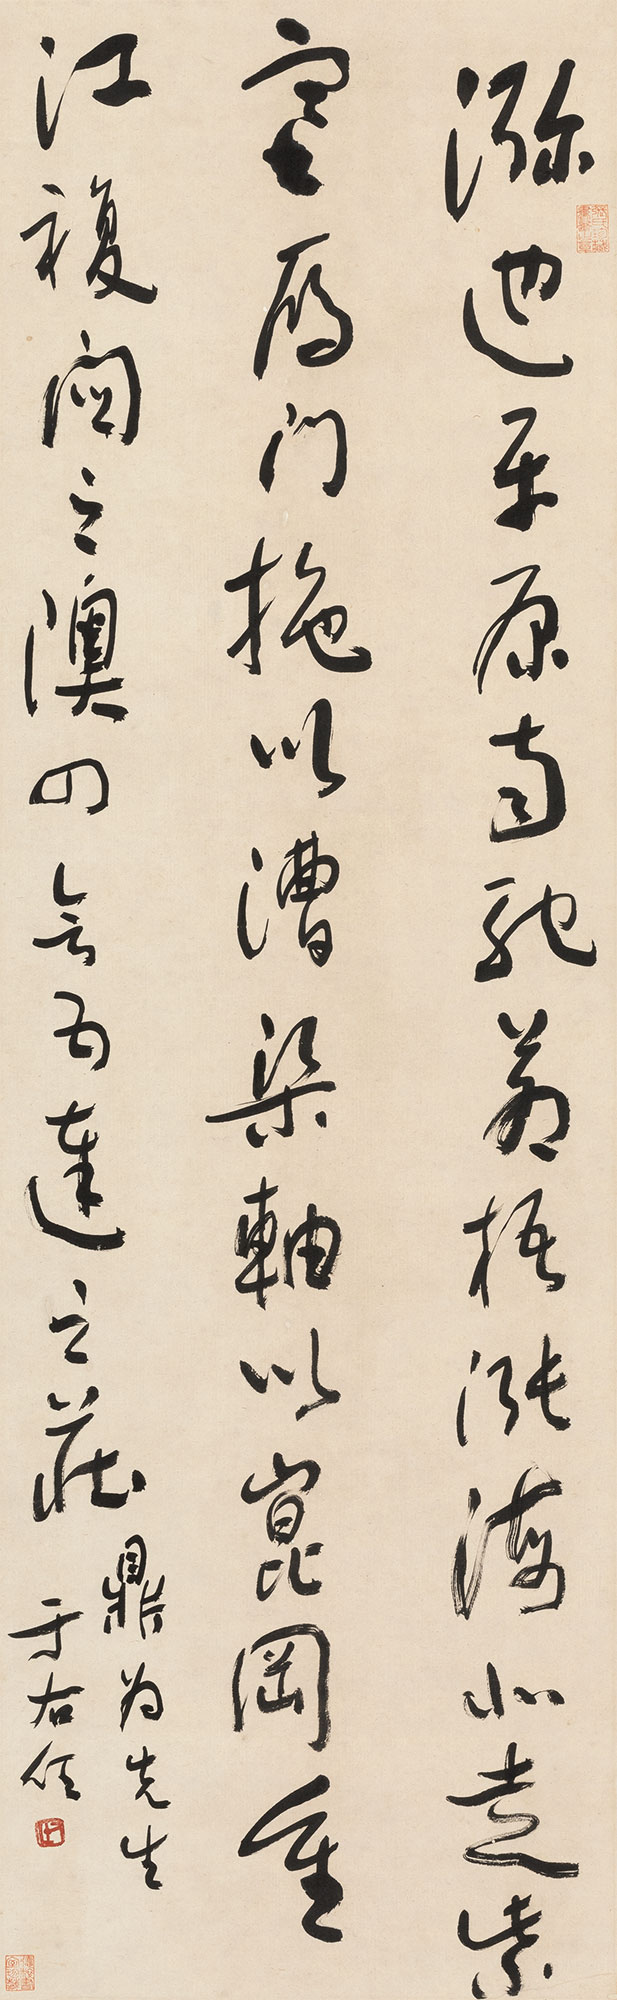 瀰迆平原南馳蒼梧漲海北走紫
塞雁門拖以漕渠軸以崑岡重
江複關之澳四會五達之莊
鼎為先生
于右任